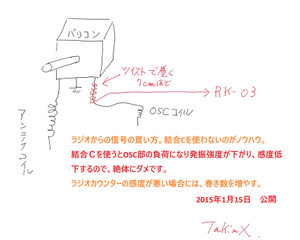 バリコン
ツイストで巻く
7cmほど
RK-03
OSCコイル
アンテナコイル
ラジオからの信号の貰い方。結合cを使わないのがノウハウ。
結合Cを使うとOSC部の負荷になり発振強度が下がり、感度低
下するので、絶体にダメです。
ラジオカウンターの感度が悪い場合には、巻き数を増やす。
2015年1月15日　公開
TakinX